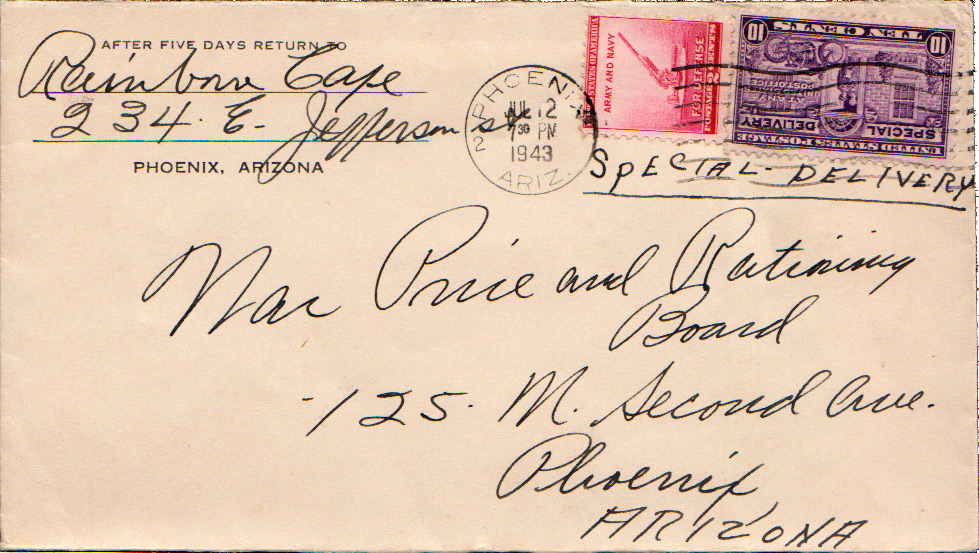 AFTER FIVE DAYS RETURN TO
Rainbow Cafe
234. E. Jefferson st
PHOENIX, ARIZONA
PHOENIX
2
JUL 12
7 30 PM
1943
ARIZ.
UNITED STATES OF AMERICA
ARMY AND NAVY
FOR DEFENSE
POSTAGE 2 CENTS
UNITED STATES POSTAGE
SPECIAL DELIVERY
AT ANY
POST OFFICE
10 TEN CENTS 10
SPECIAL DELIVERY
War Price and Rationing
Board
-125. N. Second Ave.
Phoenix,
ARIZONA